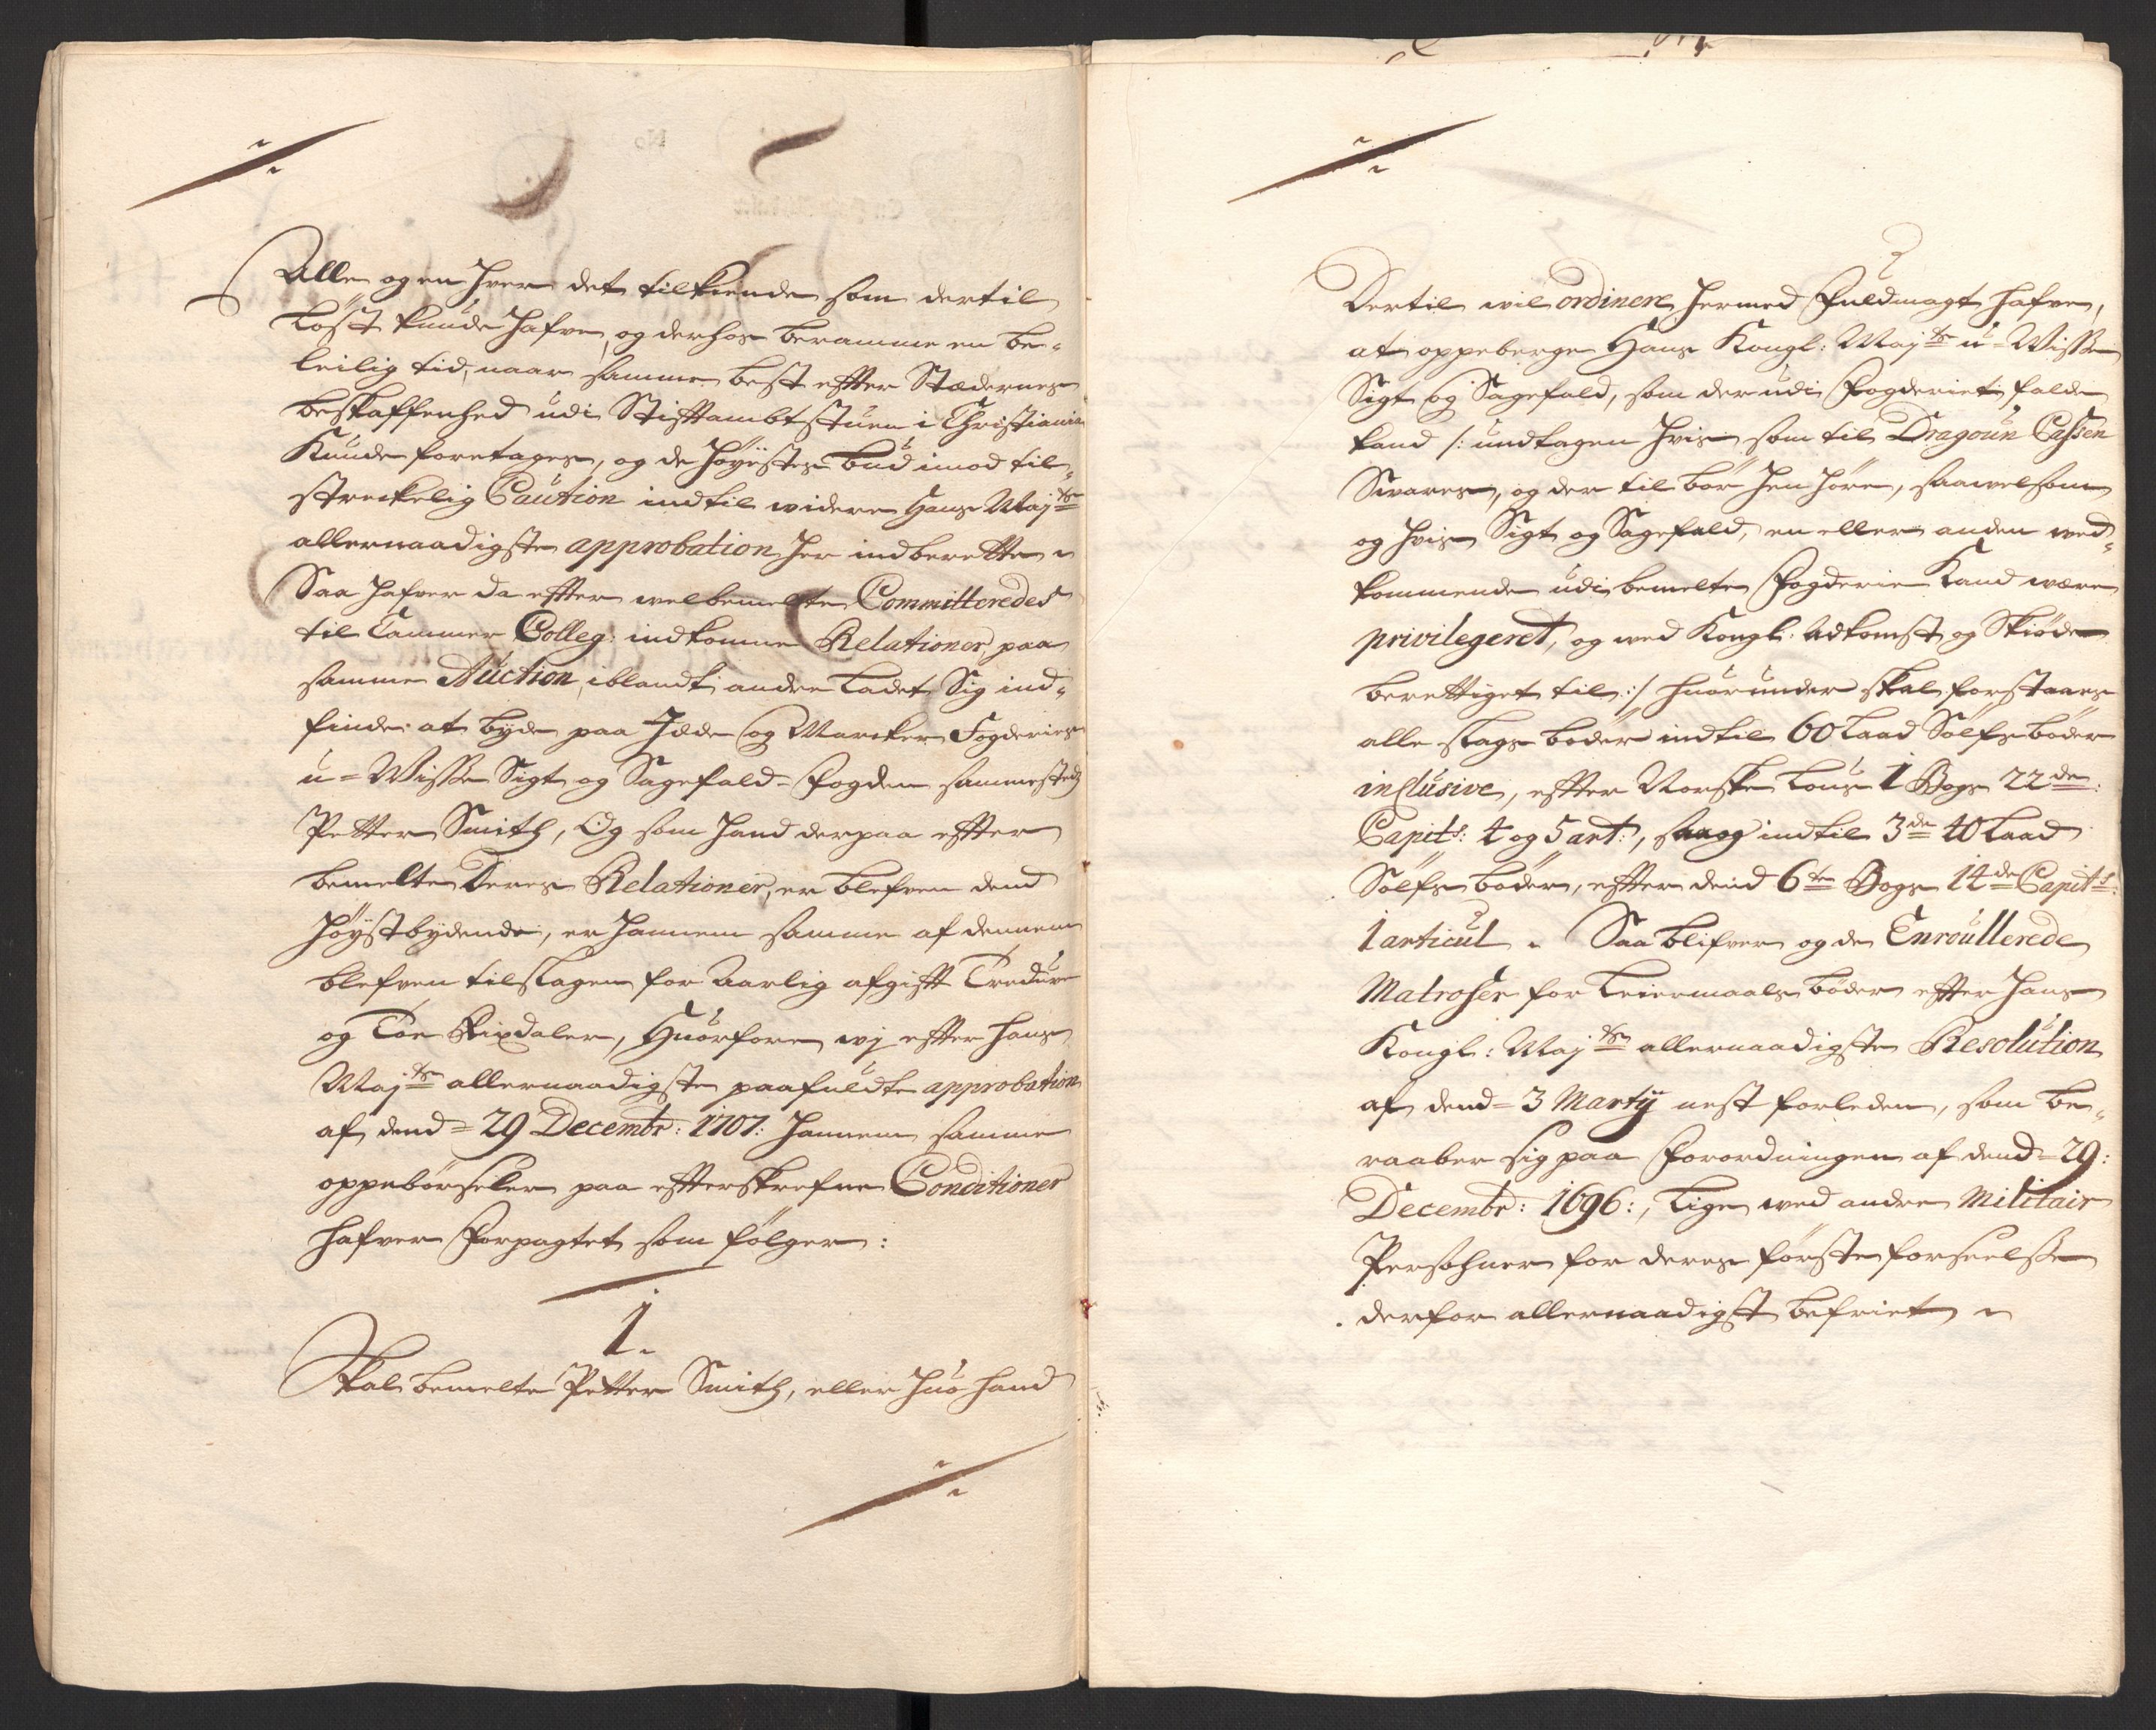 Alle og en hver det tilkiende som dertil
Löst kunde hafve, og derhos beramme en be-
leilig tid, naar samme best effter Stædernes
beskaffenhed udi Stifftambtstuen i Christiania
Kunde foretages, og de Höyeste bud imod til-
streckelig Caution indtil widere Hans Maj:ts
allernaadigste approbation her indberette
Saa hafver da effter welbemelte Committeredes
til Cammer Colleg: indkomne Relationer, paa
samme Auction, iblandt andre ladet Sig ind-
finde at byde paa Idde og Marcker Fogderies
u-Wisse Sigt og Sagefald-Fogden sammestedz
Petter Smith, Og som hand derpaa effter
bemelte Deres Relationer, er blefven dend
Höystbydende, er hannem samme af dennem
blefven tilslagen for Aarlig afgifft Tredüve
og Toe Rixdaler, Huorfore wj effter Hans
Maj:ts allernaadigste paafuldte approbation
af dend-29 Decembr: 1707: hannem samme
oppebörseler paa effterskrefne Conditioner
hafver Forpagtet som fölger:
1.
Skal bemelte Petter Smith, eller huo hand
Dertil wil ordinere hermed Fuldmagt hafve,
at oppeberge Hans Kongl: Maj:ts u-Wisse
Sigt og Sagefald, som der udi Fogderiet falde
kand /: undtagen hvis som til Dragoun Cassen
Svares, og der til bör hen höre, saavelsom
og hvis Sigt og Sagefald, en eller anden wed-
kommende udi bemelte Fogderie Kand være
privilegeret, og med Kongl: Adkomst og Skiöde
berettiget til:/ huorunder skal forstaaes
alle slags böder indtil 60 Laad Sölfs böder
inclusive, effter Norske Lous 1 Bogs 22de:
Capitl: 4 og 5 art:, saa og indtil 3de 40 Laad
Sölfs böder, effter dend 6te Bogs 14de Capitl:
1 articul. Saa blifver og de Enroullerede
Matroser for Leiermaals böder effter Hans
Kongl: Maj:ts allernaadigste Resolution
af dend-3 Marty nest forleden, som be-
raaber sig paa Forordningen af dend-29:
Decembr: 1696:, lige ved andre Militair
Persohner for deres förste forseelse
derfor allernaadigst befriet